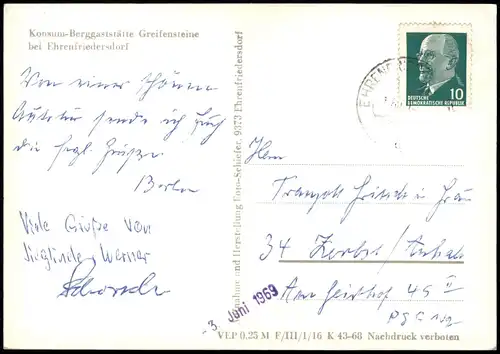 Konsum-Berggaststätte Greifensteine
bei Ehrenfriedersdorf
Von einer schönen
Autotour sende ich Euch
die Grüße
Viele Grüße von
Sieglinde, Werner
Aufnahme und Herstellung Foto-Schiefer, 9373 Ehrenfriedersdorf
EHRENF
10
DEUTSCHE
DEMOKRATISCHE REPUBLIK
Fam.
Fritsch u. Frau
34 Zerbst/Anhalt
Am 45 II
PSF 192
3. Juni 1969
VEP 0.25 M F/III/1/16 K 43-68 Nachdruck verboten